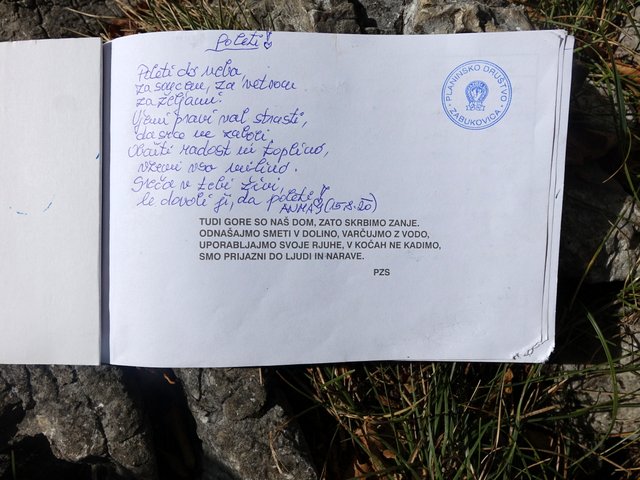 Poleti!
Poleti do neba,
za soncem, za vetrom
za željami!
Ujemi pravi val strasti,
da srce ne zaboli.
Občuti radost in toplino,
vzemi vso milino.
Sreča v tebi živi,
le dovoli ji, da poleti!
(15.8.20)
PLANINSKO DRUŠTVO
ZABUKOVICA
TUDI GORE SO NAŠ DOM, ZATO SKRBIMO ZANJE.
ODNAŠAJMO SMETI V DOLINO, VARČUJMO Z VODO,
UPORABLJAJMO SVOJE RJUHE, V KOČAH NE KADIMO,
SMO PRIJAZNI DO LJUDI IN NARAVE.
PZS